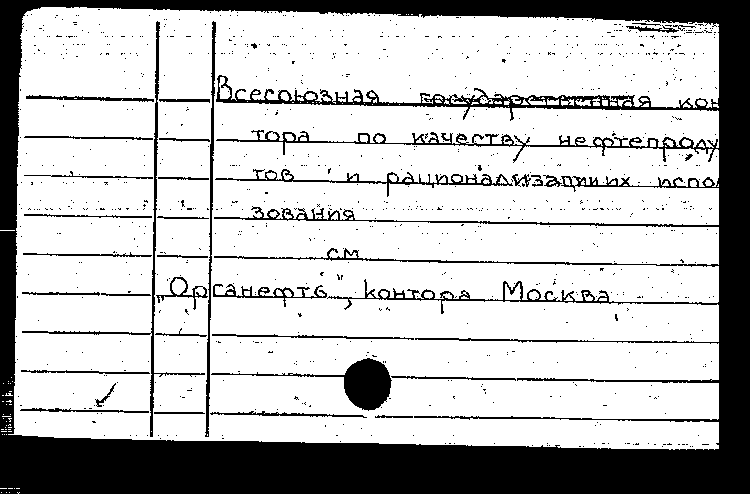 Всесоюзная государственная кон
тора по качеству нефтепроду
тов и рационализации их испо
зования
см
„Органефть", контора Москва